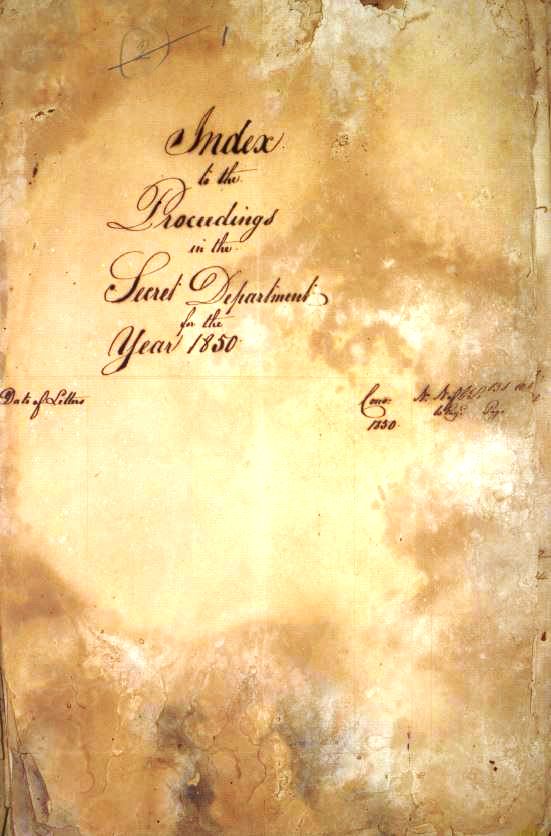 (2) 1
Index
to the
Proceedings
in the
Secret Department
for the
Year 1850
Date of Letters
Cons: N. N. of
1850. Page